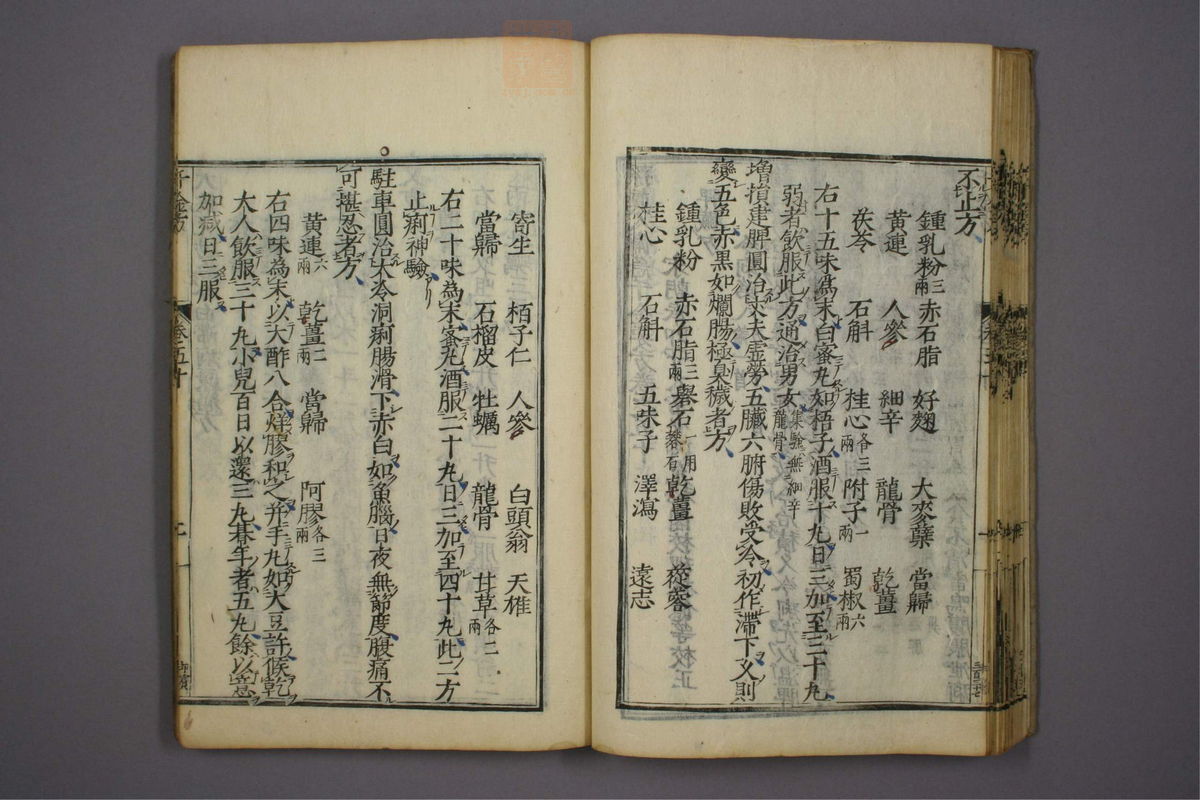 不止方
鍾乳粉三兩 赤石脂 好麹 大麥蘖 當歸
黄連 人參 細辛 龍骨 乾薑
茯苓 石斛 桂心各三兩 附子一兩 蜀椒六兩
右十五味爲末白蜜丸如梧子酒服十丸日三加至三十丸
弱者飲服此方通治男女集驗無細辛龍骨
增損建脾圓治丈夫虛勞五臟六腑傷敗受冷初作滯下又則
變五色赤黑如爛腸極臭穢者方
鍾乳粉 赤石脂三兩 礜石一用礬石 乾薑 蓯蓉
桂心 石斛 五味子 澤瀉 遠志
寄生 栢子仁 人參 白頭翁 天雄
當歸 石榴皮 牡蠣 龍骨 甘草各二兩
右二十味為末蜜丸酒服二十丸日三加至四十丸此二方
止痢神驗
駐車圓治大冷洞痢腸滑下赤白如魚腦日夜無節度腹痛不
可堪忍者方
黄連六兩 乾薑二兩 當歸 阿膠各三兩
右四味為末以大酢八合烊膠和之并手丸如大豆許候乾
大人飲服三十丸小兒百日以還三丸朞年者五丸餘以意
加減日三服
千金方 卷五十